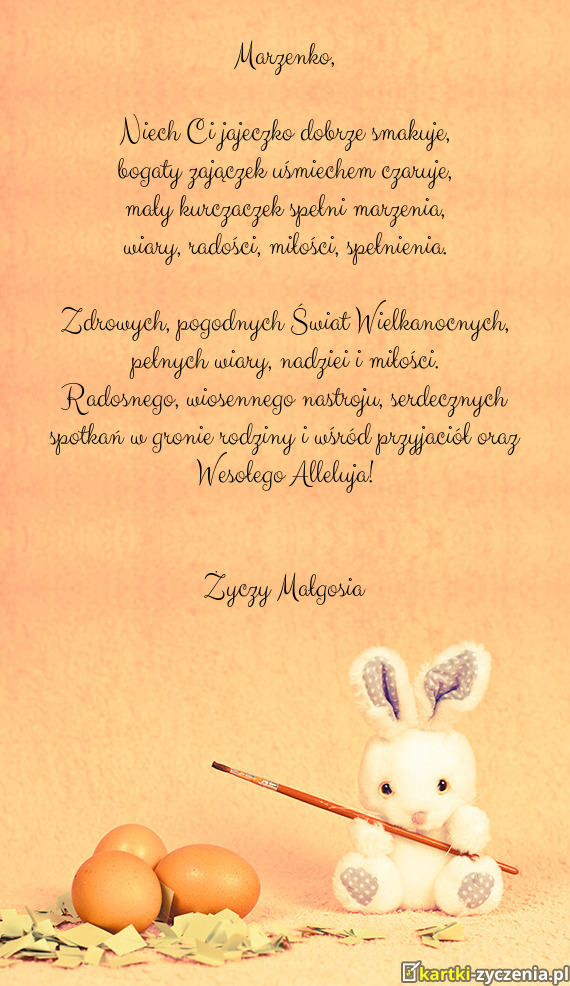 Marzenko,
Niech Ci jajeczko dobrze smakuje,
bogaty zajączek uśmiechem czaruje,
mały kurczaczek spełni marzenia,
wiary, radości, miłości, spełnienia.
Zdrowych, pogodnych Świat Wielkanocnych,
pełnych wiary, nadziei i miłości.
Radosnego, wiosennego nastroju, serdecznych
spotkań w gronie rodziny i wśród przyjaciół oraz
Wesołego Alleluja!
Życzy Małgosia
kartki-zyczenia.pl